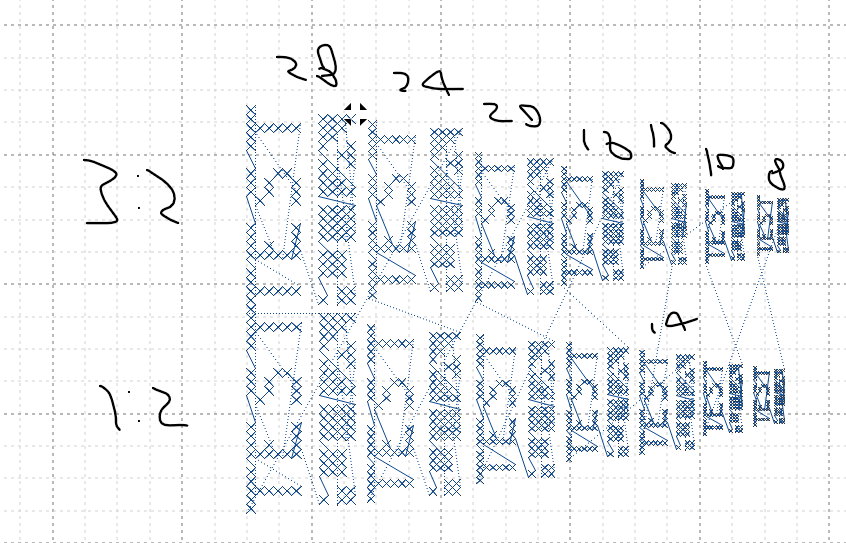 28 24 20 16 12 10 8
3:2
14
1:2